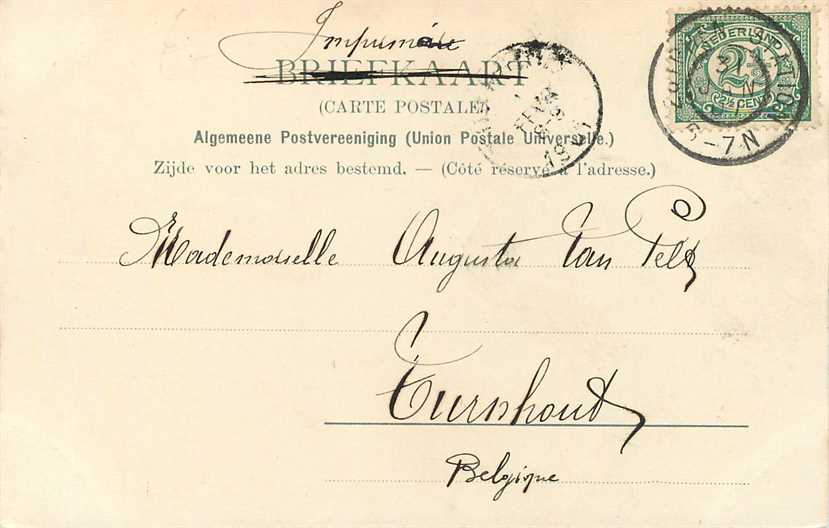 Imprimée
BRIEFKAART
(CARTE POSTALE)
Algemeene Postvereeniging (Union Postale Universelle.)
Zijde voor het adres bestemd. — (Côté réservé à l'adresse.)
NEDERLAND
2½
2½ CENT
5-7N
Mademoiselle Augusta Van Pelt
Turnhout
Belgique